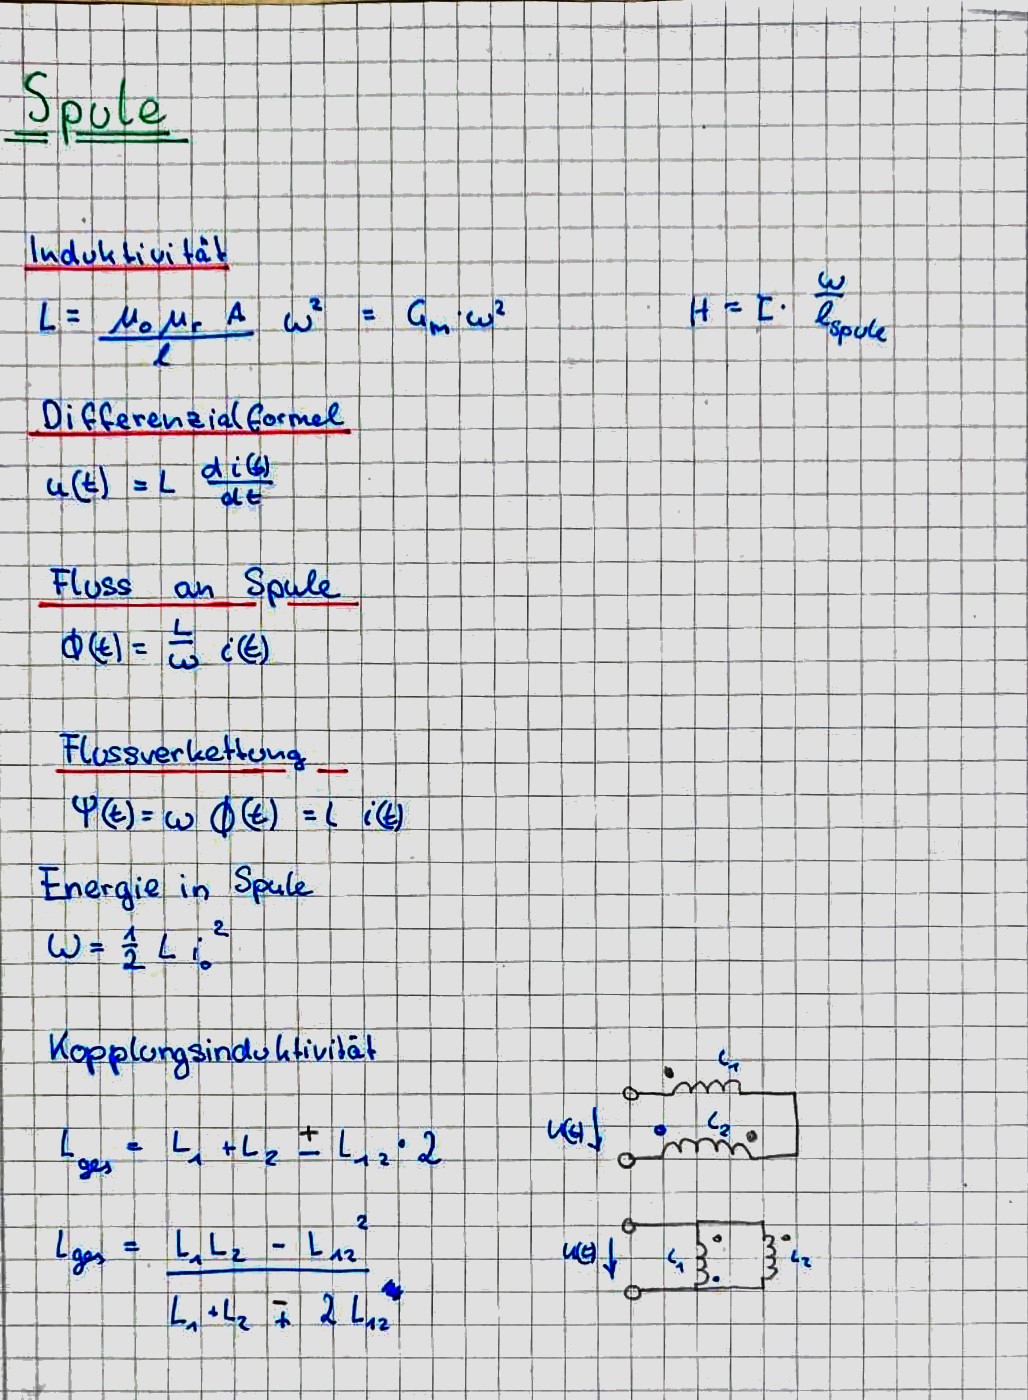 Spule
Induktivität
L = μ₀ μᵣ A / l ω² = Gₘ · ω²
H = I · ω / l_Spule
Differenzialformel
u(t) = L di(t)/dt
Fluss an Spule
ϕ(t) = L/ω i(t)
Flussverkettung
Ψ(t) = ω ϕ(t) = L i(t)
Energie in Spule
ω = 1/2 L i₀²
Kopplungsinduktivität
L₁
L_ges = L₁ + L₂ ± L₁₂ · 2
u(t)
L₂
L_ges = (L₁ L₂ - L₁₂²) / (L₁ + L₂ ∓ 2 L₁₂)
u(t)
L₁
L₂